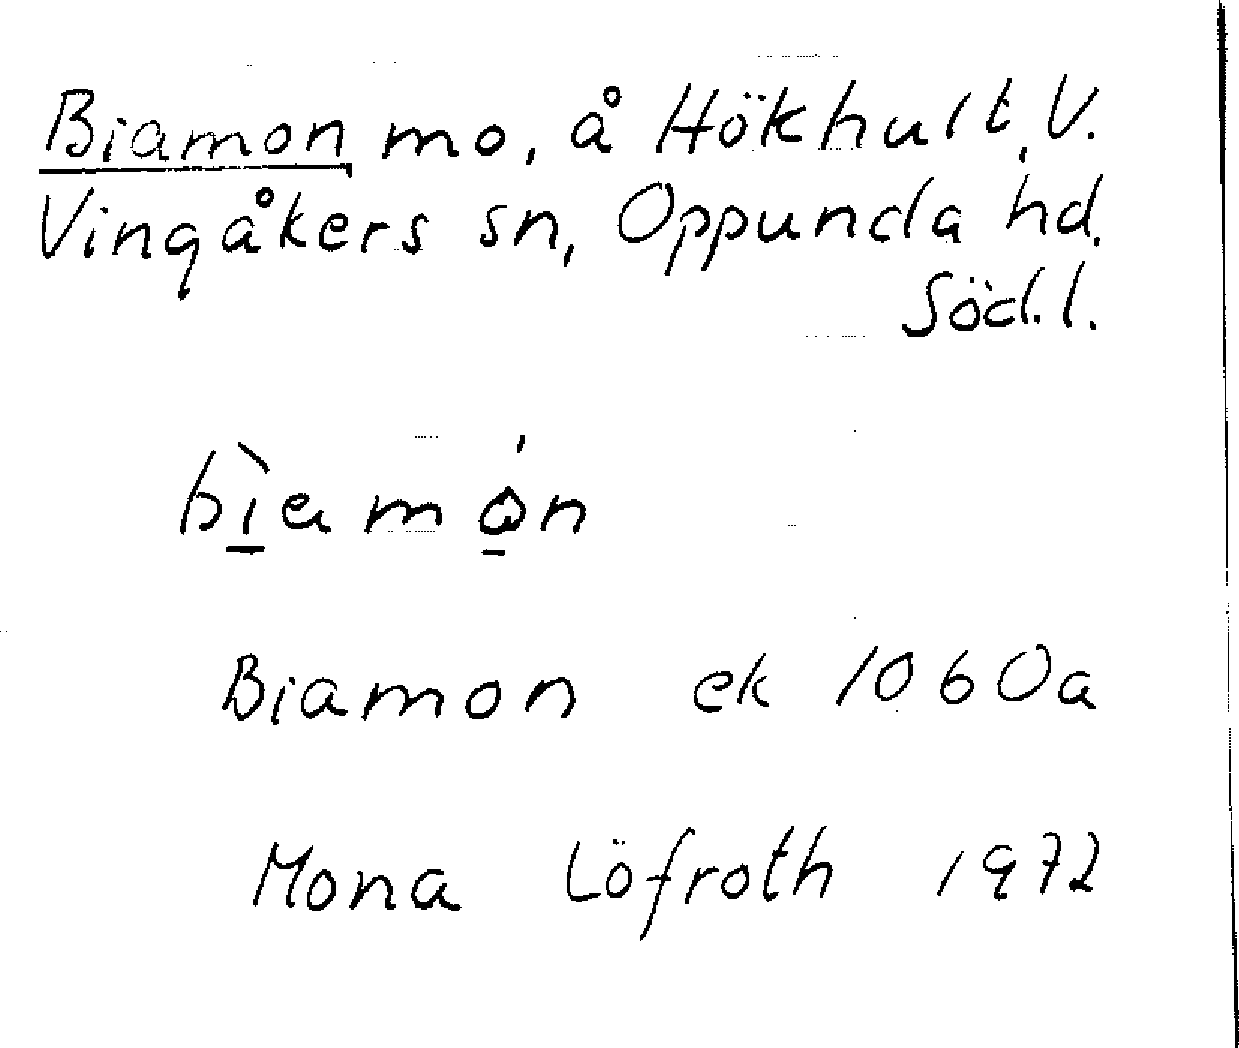 Biamon mo, å Hökhult, V.
Vingåkers sn, Oppunda hd.
Söd.l.
bìamón
Biamon ek 1060a
Mona Löfroth 1972